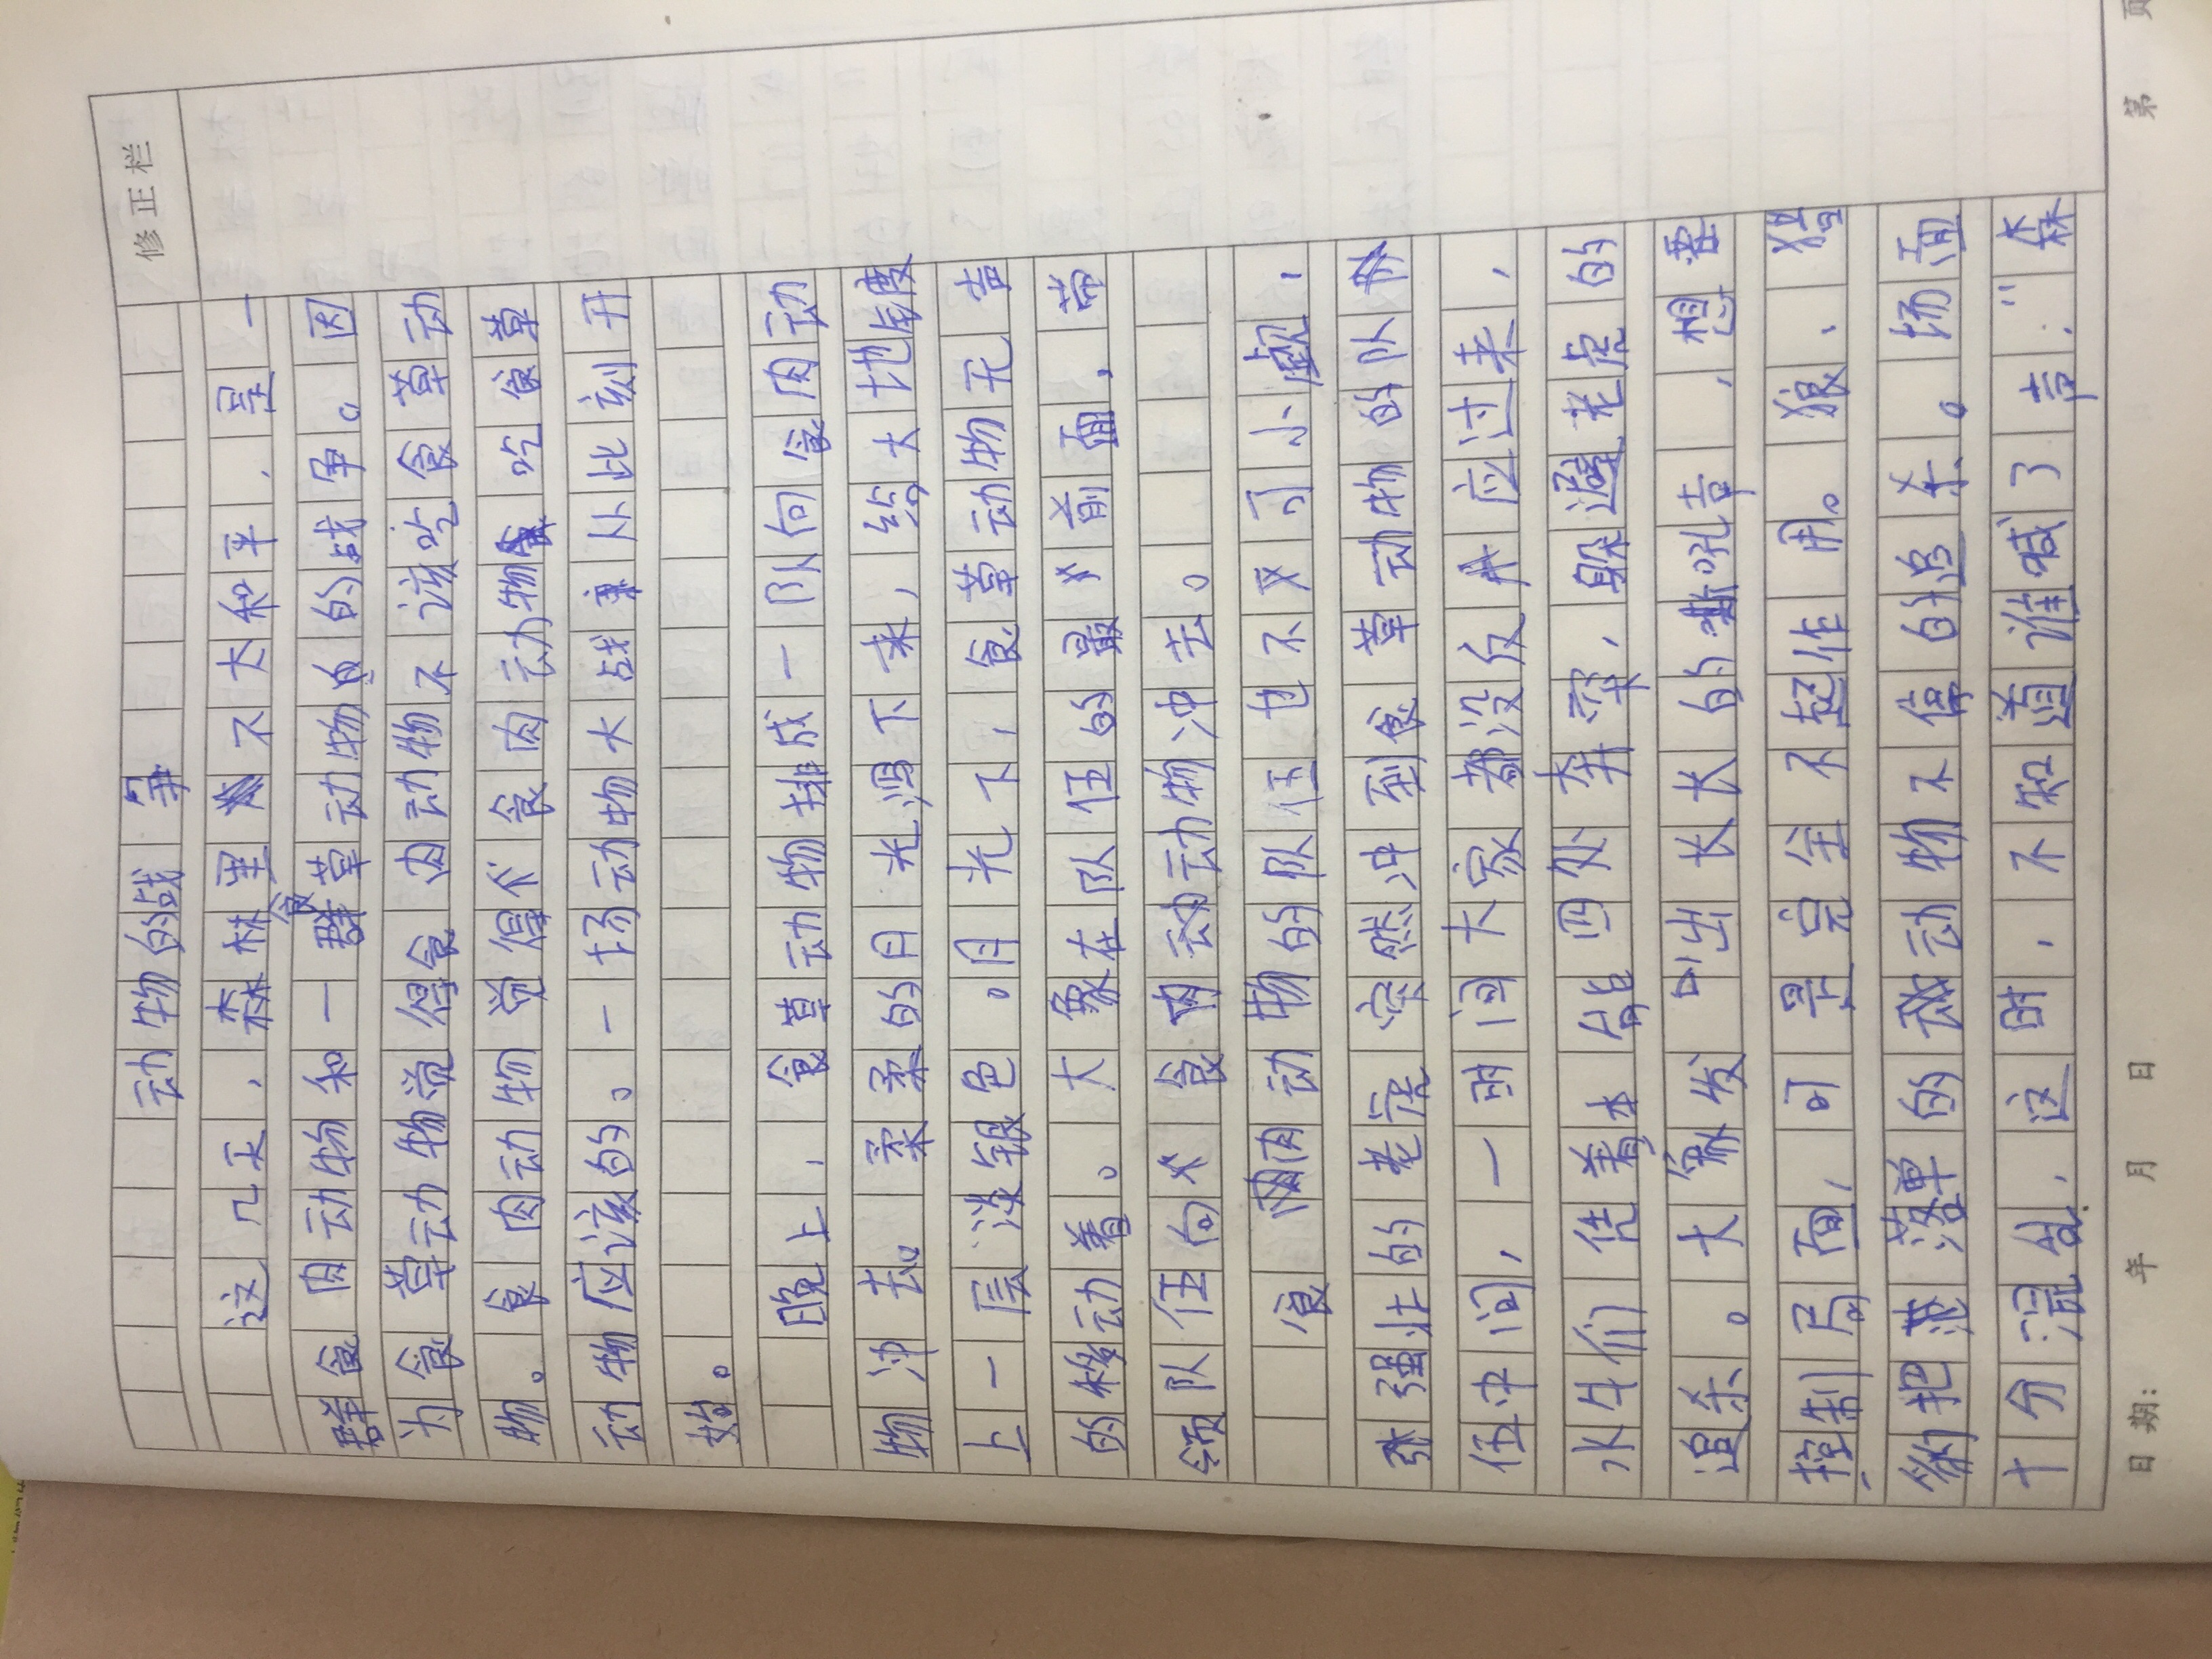 修正栏
动物的战争
这几天，森林里不大和平，是一
群食肉动物和一群食草动物的战争。因
为食草动物觉得食肉动物不该吃食草动
物。食肉动物觉得食肉动物吃食草
动物应该的。一场动物大战从此刻开
始。
晚上，食草动物排成一队向食肉动
物冲去。柔柔的月光洒下来，给大地铺
上一层淡银色。月光下，食草动物无声
的移动着。大象在队伍的最前面，带
领队伍向食肉动物冲去。
食肉动物的队伍也不可小觑，
强壮的老虎突然冲到食草动物的队
伍中间，一时间大家都没反应过来，
水牛们凭着本能四处奔窜，躲避老虎的
追杀。大象发出长长的吼声，想要
控制局面，可是完全不起作用。狼、猩
豹把落单的动物不停的追杀。场面
十分混乱，这时，不知道谁喊了声：“森
日期： 年 月 日 第 页